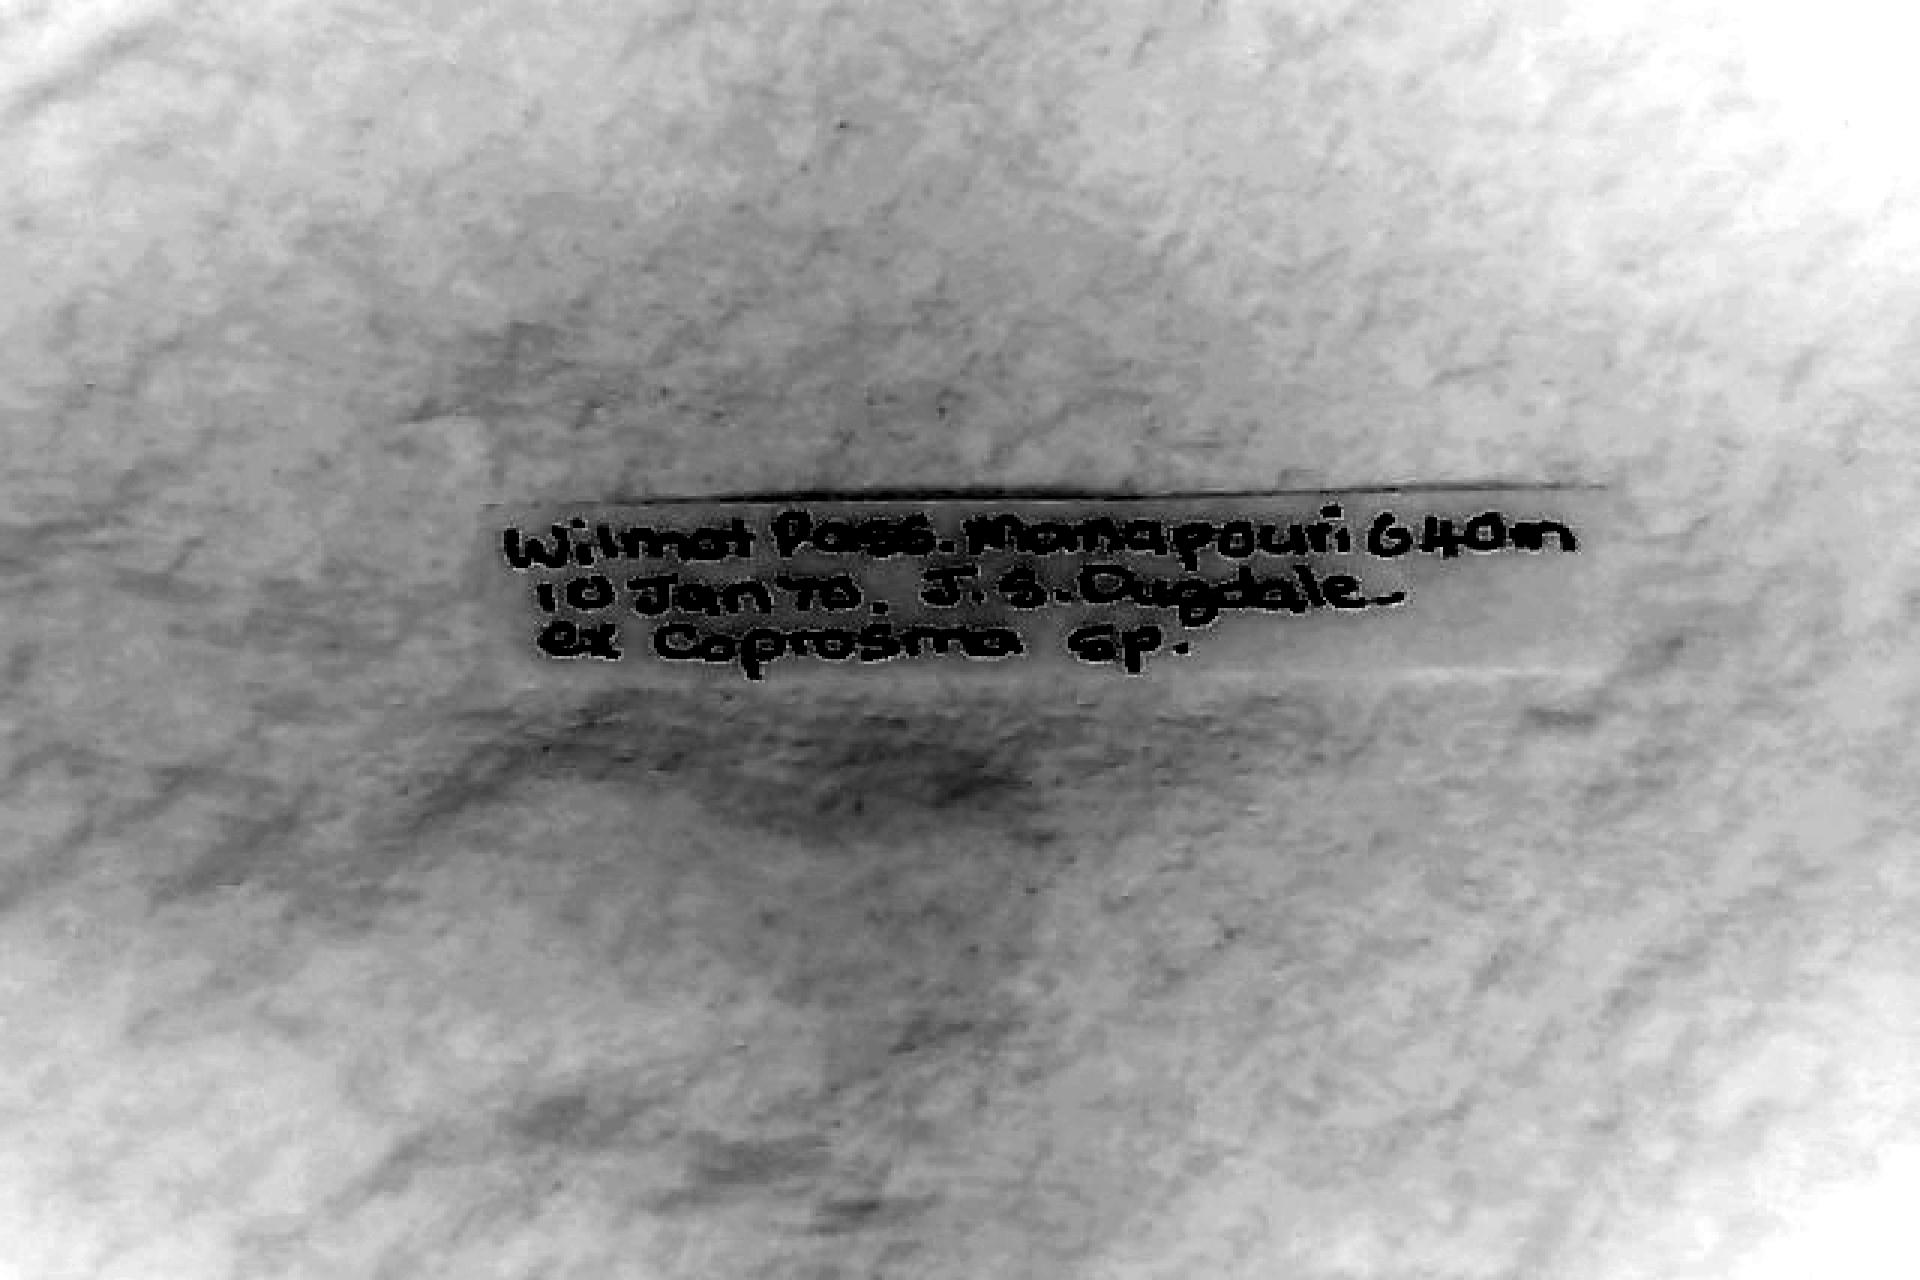 Wilmot Pass. Manapouri 640m
10 Jan 70. J.S. Dugdale
ex Coprosma sp.